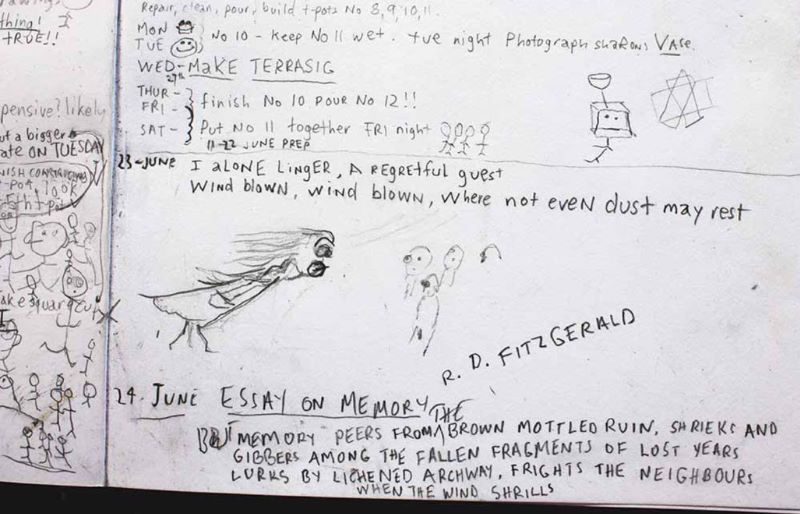 thing!
TRUE!!
pensive? likely
ut a bigger
ate ON TUESDAY
Repair, clean, pour, build t-pots No 8, 9, 10, 11.
MON
TUE
No 10 - keep No 11 wet. tue night Photograph sharons Vase.
WED - MaKE TERRASIG
27th
THUR -
FRI -
finish No 10 POUR No 12!!
SAT - Put No 11 together FRI night
11-22 JUNE PREP
23-JUNE I aLONE LINGER, A REgRetful guest
WIND BLOWN, WIND BLOWN, Where not even dust may rest
R. D. FITZGERALD
24. JUNE ESSAY ON MEMORY
BUT MEMORY PEERS FROM THE BROWN MOTTLED RUIN, SHRIEKS AND
GIBBERS AMONG THE FALLEN FRAGMENTS OF LOST YEARS
LURKS BY LICHENED ARCHWAY, FRIGHTS THE NEIGHBOURS
WHEN THE WIND SHRILLS